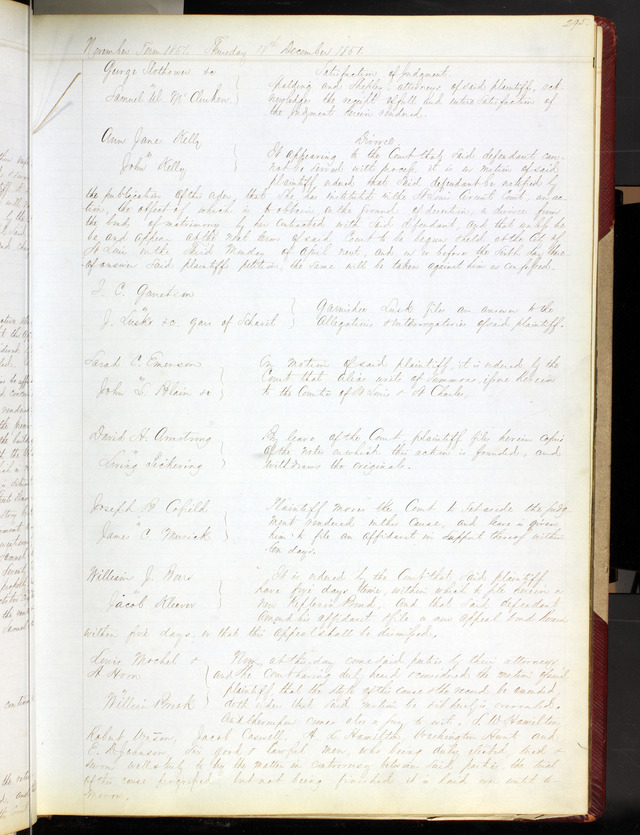 295
November Term 1851. Thursday 11th December 1851
George Slothower &c
vs
Samuel W. McCluken
Satisfaction of Judgment.
Spalding and Shepley, attorneys of said plaintiff, ack-
nowledges the receipt of full and entire satisfaction of
the Judgment herein rendered.
Ann Jane Kelly
vs
John Kelly
Divorce
It appearing to the Court that said defendant can-
not be served with process, it is on motion of said
plaintiff ordered that said defendant be notified by
the publication of this order, that she has instituted in the St Louis Circuit Court an ac-
tion, the object of which is to obtain on the ground of desertion, a divorce from
the bonds of matrimony by her contracted with said defendant, and that unless he
be and appear at the next term of said Court to be begun & held at the City of
St Louis on the third Monday of April next, and on or before the sixth day there-
of answer said plaintiffs petition, the same will be taken against him as confessed.
J. C.
vs
J. Lusk &c. gar. of
Garnishee Lusk files an answer to the
Allegations & interrogatories of said plaintiff.
Sarah C. Emerson
vs
John S. Blain &c
On motion of said plaintiff, it is ordered by the
Court that alias writs of Summons issue herein
to the Counties of St Louis & St Charles.
David H. Armstrong
vs
By leave of the Court, plaintiff files herein copies
of the notes on which this action is founded, and
withdraws the originals.
Joseph
vs
Jane C.
Plaintiff moves the Court to set aside the judg
ment rendered in this Cause, and leave is given
him to file an affidavit in support thereof within
ten days.
William J.
vs
Jacob Kleaver
It is ordered by the Court that said plaintiff
have five days time, within which to file herein a
new Bond. And that said defendant
amend his affidavit & file a new appeal bond herein
within five days, or that the appeal shall be dismissed.
Lewis &
A Horn
vs
William Brook
Now at this day come said parties by their attorneys
and the Court having duly heard & considered the motion of said
plaintiff that the style of this cause & the record be amended
doth order that said motion be & it hereby is overruled.
And thereupon comes also a jury to wit, L W Hamilton,
Robert Jacob A L Hamilton, Washington Hunt and
E. D. Johnson, Six good & lawful men, who being duly elected, tried &
sworn well & truly to try the matter in controversy between said parties, the trial
of this cause progressed, but not being finished it is laid over until to-
morrow.